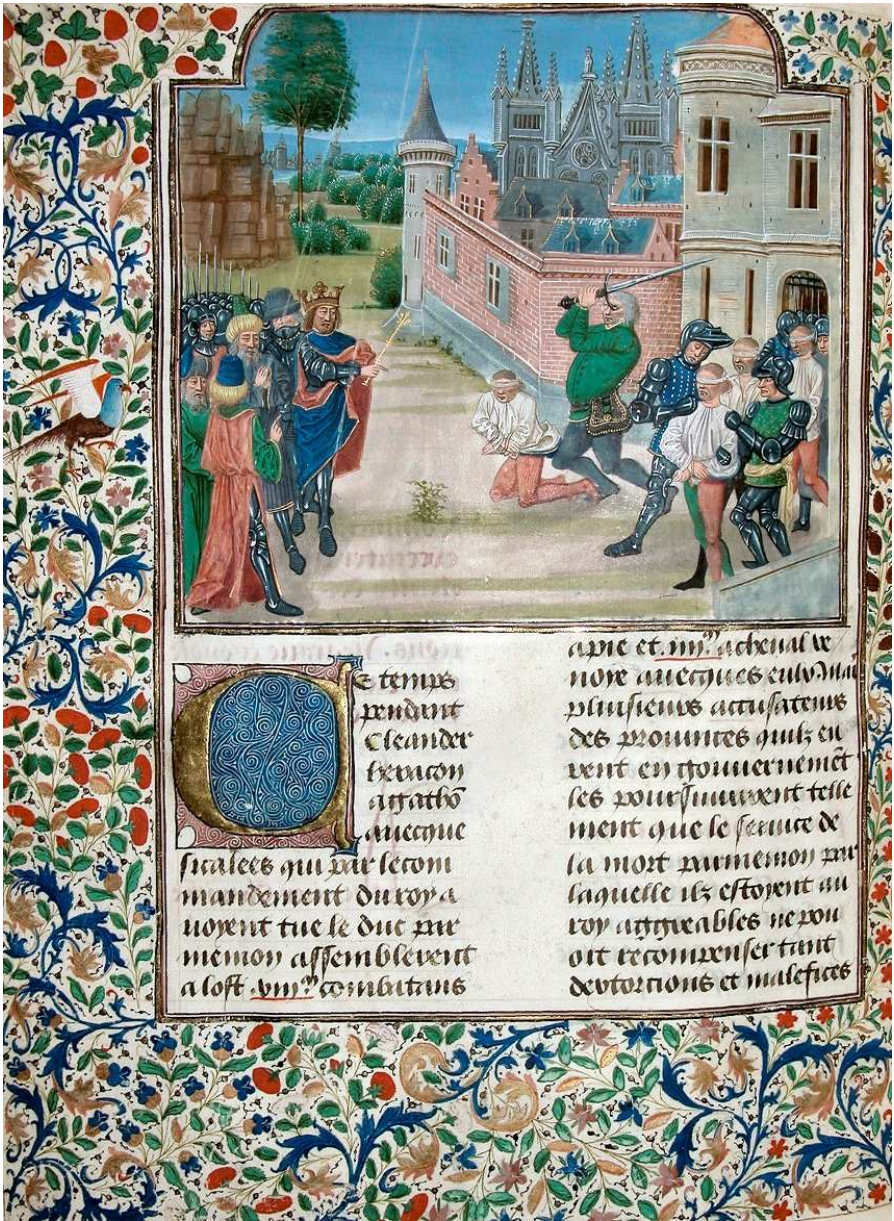 Ce temps
pendant
Cleander
heracon
agathõ
auecque
sitalces qui par lecom
mandement du roy a
uoyent tue le duc par
menion assemblerent
a lost .vmͫ. combatans
apie et .mͫ. acheual ve
noit auecques eulx Mai
plusieurs accusateurs
des prouinces quilz eu
rent en gouuernemẽt
les poursuiuirent telle
ment que le seruice de
la mort parmenion par
laquelle ilz estoyent au
roy aggreables ne pou
oit recompenser tant
dextorcions et malefices